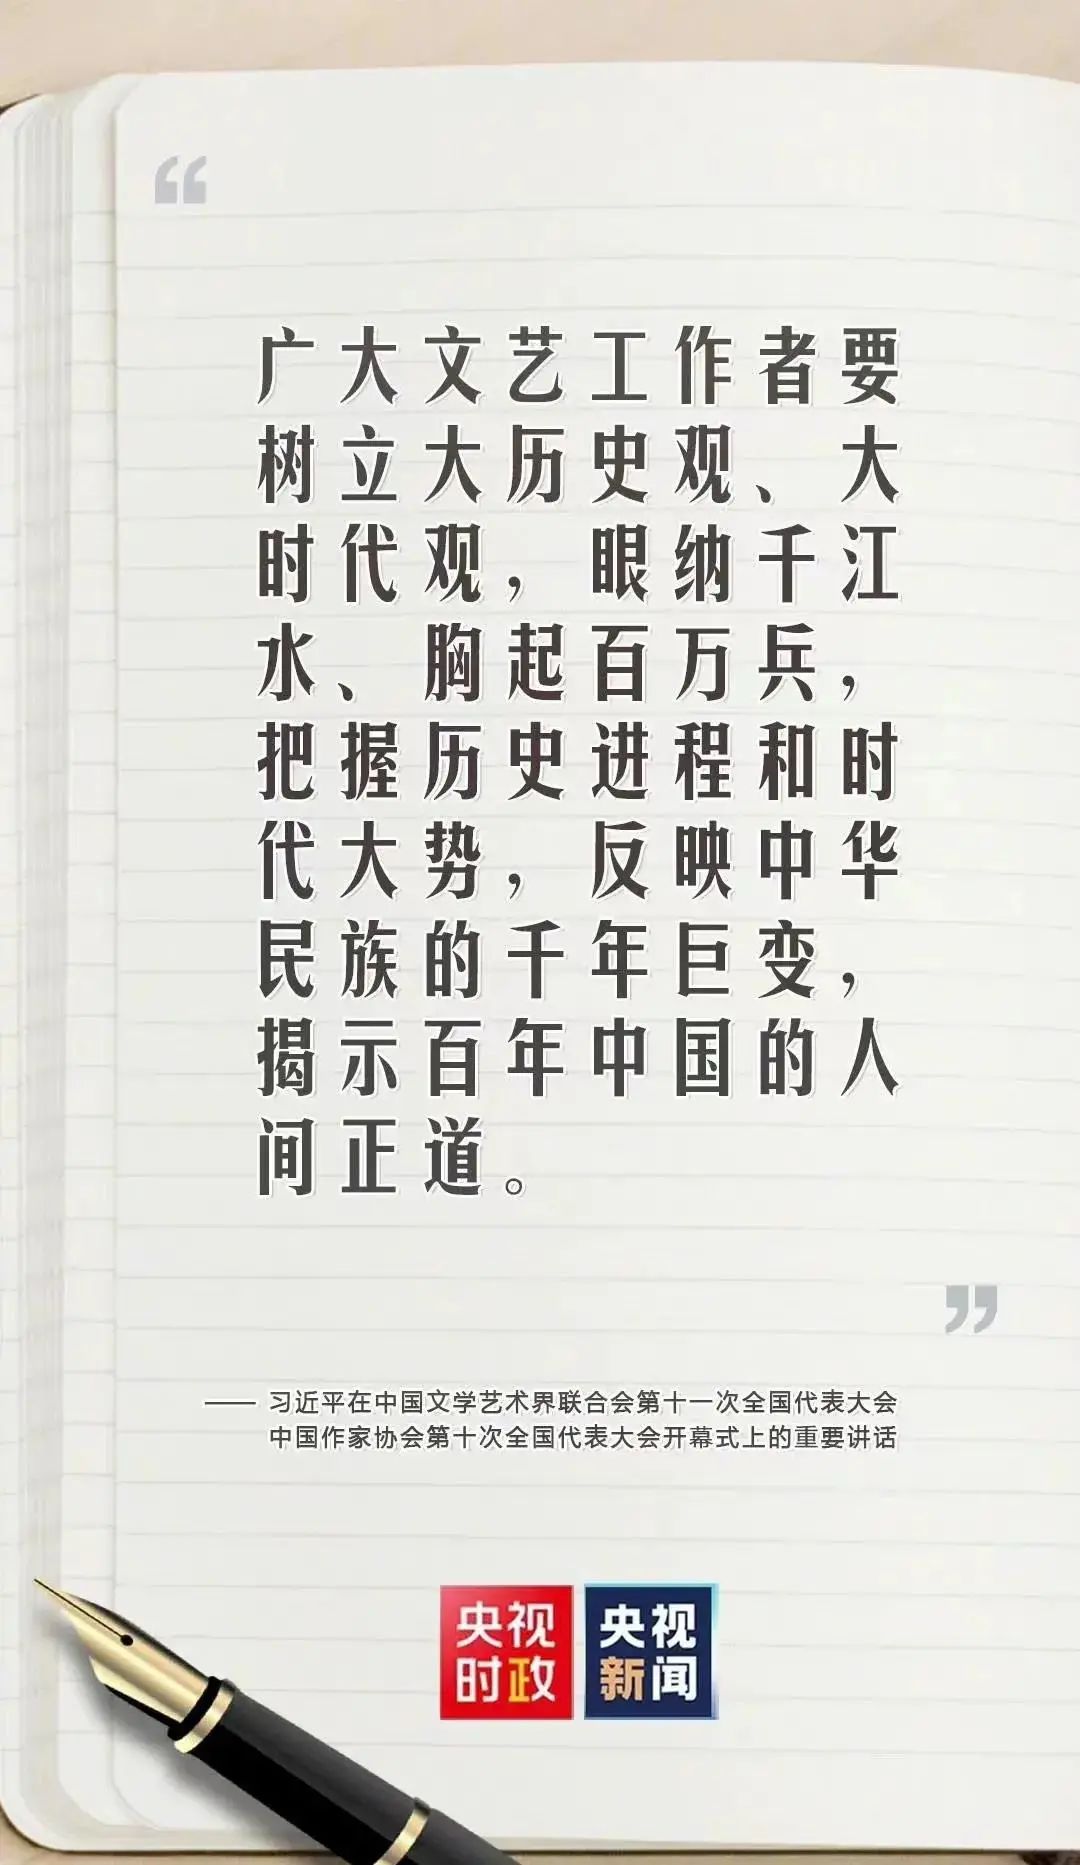 “
广大文艺工作者要
树立大历史观、大
时代观，眼纳千江
水、胸起百万兵，
把握历史进程和时
代大势，反映中华
民族的千年巨变，
揭示百年中国的人
间正道。
”
—— 习近平在中国文学艺术界联合会第十一次全国代表大会
中国作家协会第十次全国代表大会开幕式上的重要讲话
央视
时政
央视
新闻